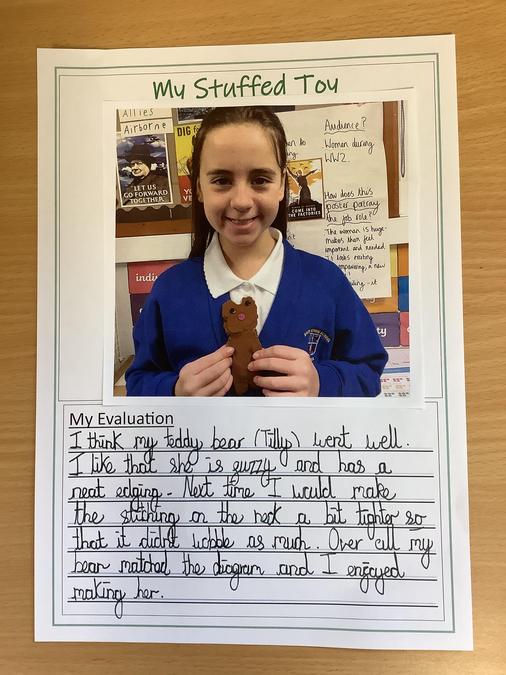 My Stuffed Toy
Allies
Airborne
LET US
GO FORWARD
TOGETHER
DIG
COME INTO
THE FACTORIES
Audience?
Women during
WW2.
How does this
poster portray
the job role?
The woman is huge-
makes them feel
important and needed
indivi
My Evaluation
I think my teddy bear (Tilly) went well.
I like that she is guzzy and has a
neat edging - Next time I would make
the stitching on the neck a bit tighter so
that it didn't wobble as much. Over all my
bear matched the diagram and I enjoyed
making her.